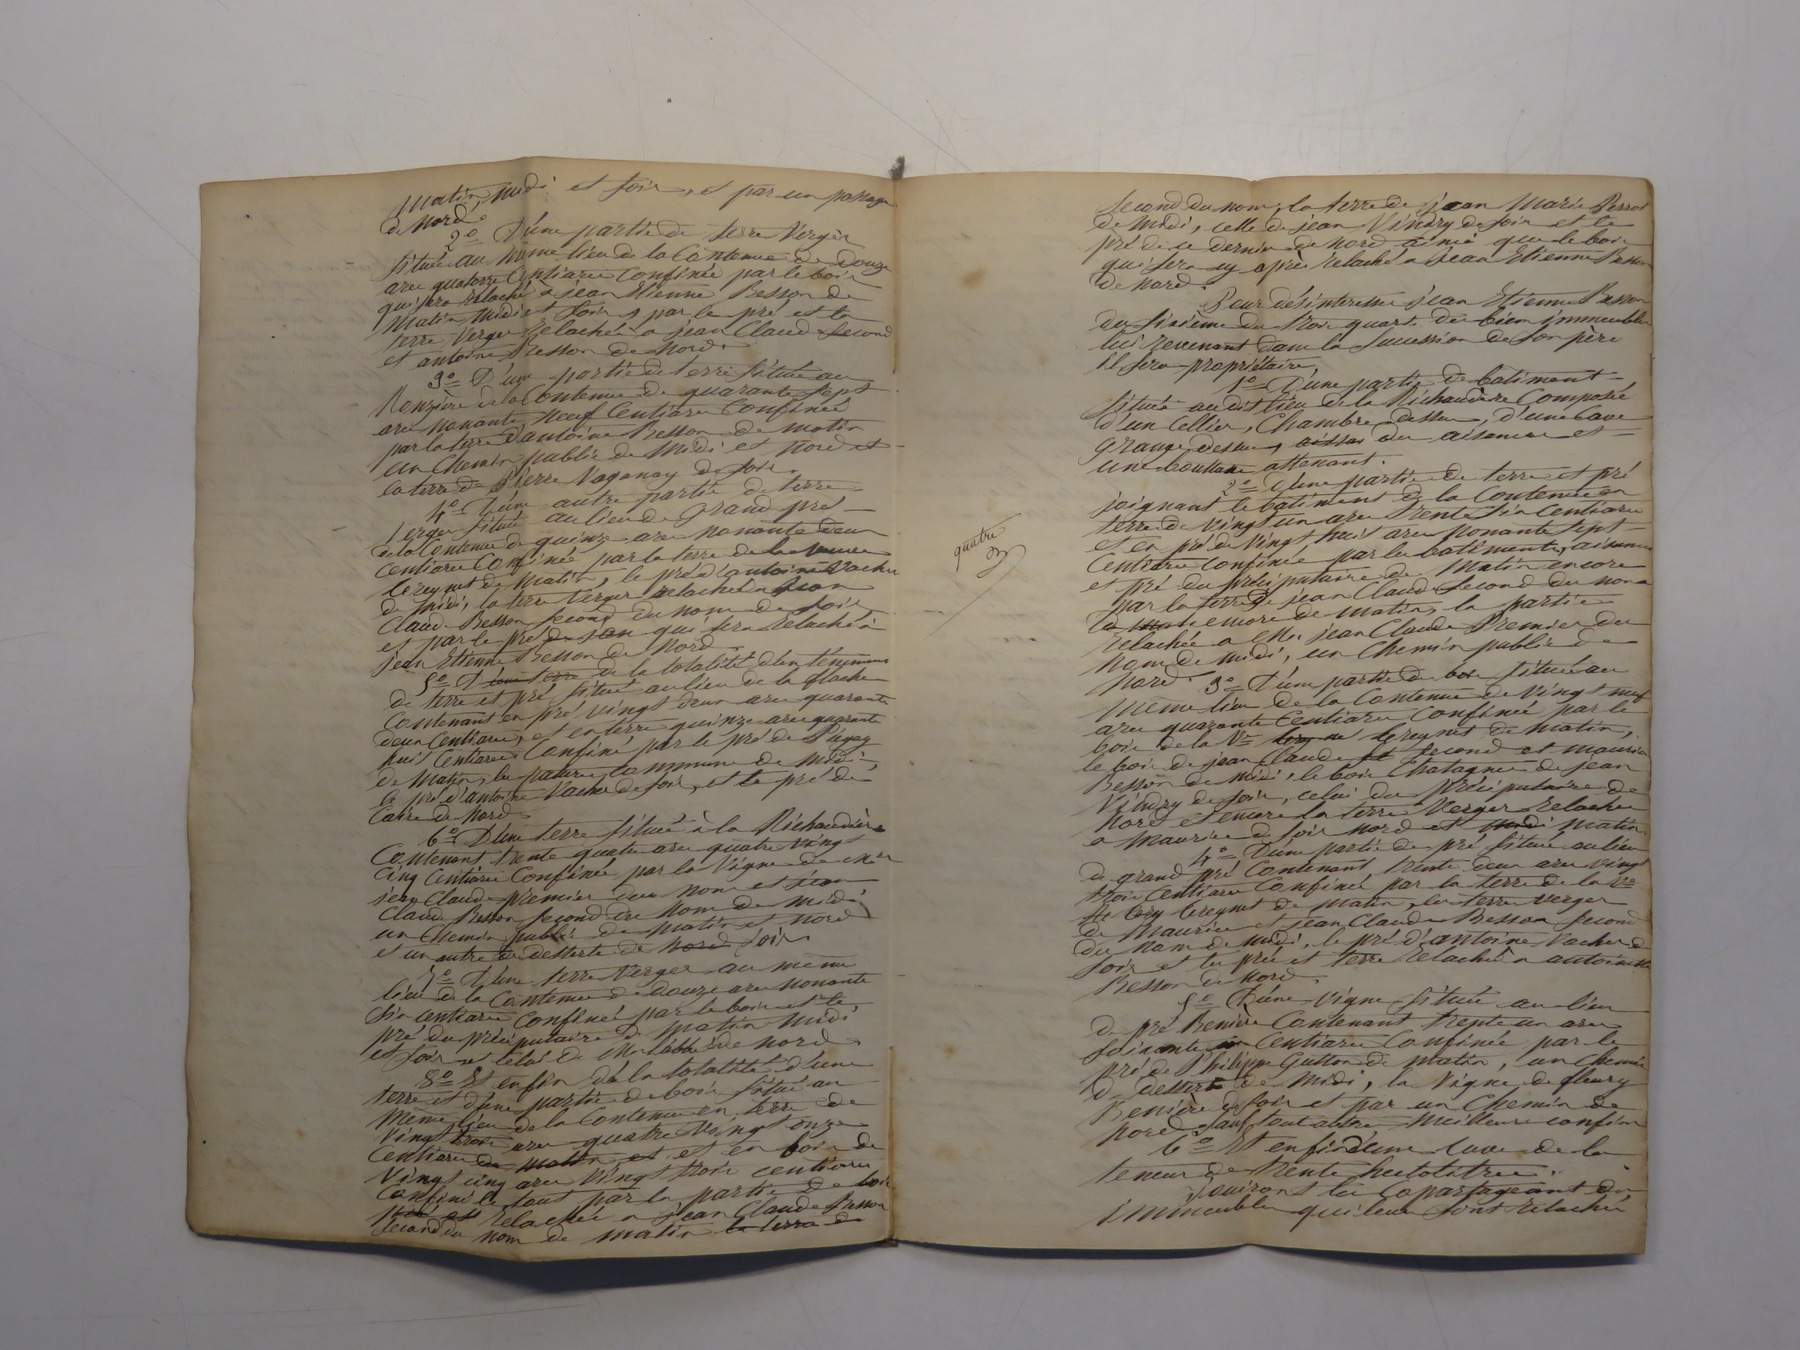 Matin, midi et soir, et par un passage
de Nord.
2o D'une partie de terre Verger
située au même lieu de la Contenue de douze
ares quatorze Centiares Confinée par le bois
qui sera relaché a jean Etienne Besson de
Matin, midi et soir, par le pré et la
terre Verger Relachée a jean Claude Second
et antoine Besson de Nord.
3o D'une partie de terre située au
de la Contenue de quarante sept
ares nonante neuf Centiares Confinée
par la terre d'antoine Besson de matin
un Chemin public de Midi et Nord et
la terre de Pierre Vaganay de soir.
4o D'une autre partie de terre
Verger située au lieu de Grand pré
de la Contenue de quinze ares nonante deux
Centiares Confinée par la terre de la veuve
de Matin, le pré d'antoine Vacher
de Midi, la terre Verger relachée a jean
Claude Besson second du nom de soir
et par le pré qui sera relaché à
jean Etienne Besson de Nord.
5o D'une terre de la totalité d'un ténement
de terre et pré situé au lieu de la flache
Contenant en pré vingt deux ares quarante
deux Centiares, et en terre quinze ares quarante
huit Centiares Confiné par le pré de
de Matin, les paturés Commune de Midi,
le pré d'antoine Vacher de soir, et le pré de
de Nord.
6o D'une terre située à la Richaudière
Contenant trente quatre ares quatre vingt
Cinq Centiares Confinée par la Vigne de
jean Claude premier du nom et jean
Claude Besson second du nom de midi
un Chemin public de Matin et Nord
et un autre de desserte de Nord soir
7o D'une terre Verger au même
lieu de la Contenue de Douze ares nonante
six centiares Confinée par le bois et le
pré du préciputaire de Matin Midi
et soir et celui de Mr l'abbé de Nord.
8o Et enfin de la totalité d'une
terre et d'une partie de bois situé au
Même lieu de la Contenue en terre de
Vingt trois ares quatre Vingt onze
Centiares de matin et et en bois de
Vingt cinq ares Vingt trois centiares
Confiné le tout par la partie de bois
Relachée a jean Claude Besson
second du nom de matin la terre de
quatre
second du nom, la terre de jean Marie Perrot
de Midi, celle de jean Vindry de soir et le
pré de ce dernier de nord ainsi que le bois
qui sera cy après relaché a jean Etienne Besson
de Nord.
Pour désinteresser jean Etienne Besson
du sixieme du trois quart des biens immeubles
lui revenant dans la succession de son père
il sera propriétaire,
1o D'une partie de batiment
située audit lieu de la Richaudière Composée
d'un Cellier, Chambre dessus, d'une Cave
grange dessus, aissas du aisances et
une attenant.
2o D'une partie de terre et pré
joignant le batiment de la Contenue en
terre de vingt un ares trente six Centiares
et en pré de vingt huit ares nonante sept
Centiares Confinée par les batiments, aisances
et pré du préciputaire de Matin encore
par la terre de jean Claude second du nom
encore de matin, la partie
relachée a Mr. jean Claude Premier du
nom de midi, un Chemin public de
Nord. 3o D'une partie de bois située au
même lieu de la Contenue de vingt neuf
ares quarante Centiares Confinée par le
bois de la Ve de Matin,
le bois de jean Claude second et maurice
Besson de midi, le bois Chatagner de jean
Vindry de soir, celui du préciputaire de
Nord et encore la terre Verger relachée
a Maurice de soir nord et midi matin.
4o D'une partie de pré située au lieu
de grand pré Contenant trente deux ares vingt
trois Centiares Confinée par la terre de la Ve
de Matin, les terre verger
de Maurice et jean Claude Besson second
du nom de midi, le pré d'antoine Vacher de
soir et les pré et terre relachés a antoine
Besson de Nord.
5o D'une vigne située au lieu
de pré Benière Contenant trente un ares
soixante Centiares Confinée par le
pré de Philippe Gutton de matin, un Chemin
de desserte de Midi, la Vigne de fleury
de soir et par un Chemin de
Nord, sauf tout autre meilleure confin
6o Et enfin d'une Cuve de la
teneur de trente hectolitres.
Jouirons les Copartageant des
immeubles qui leur sont relachés